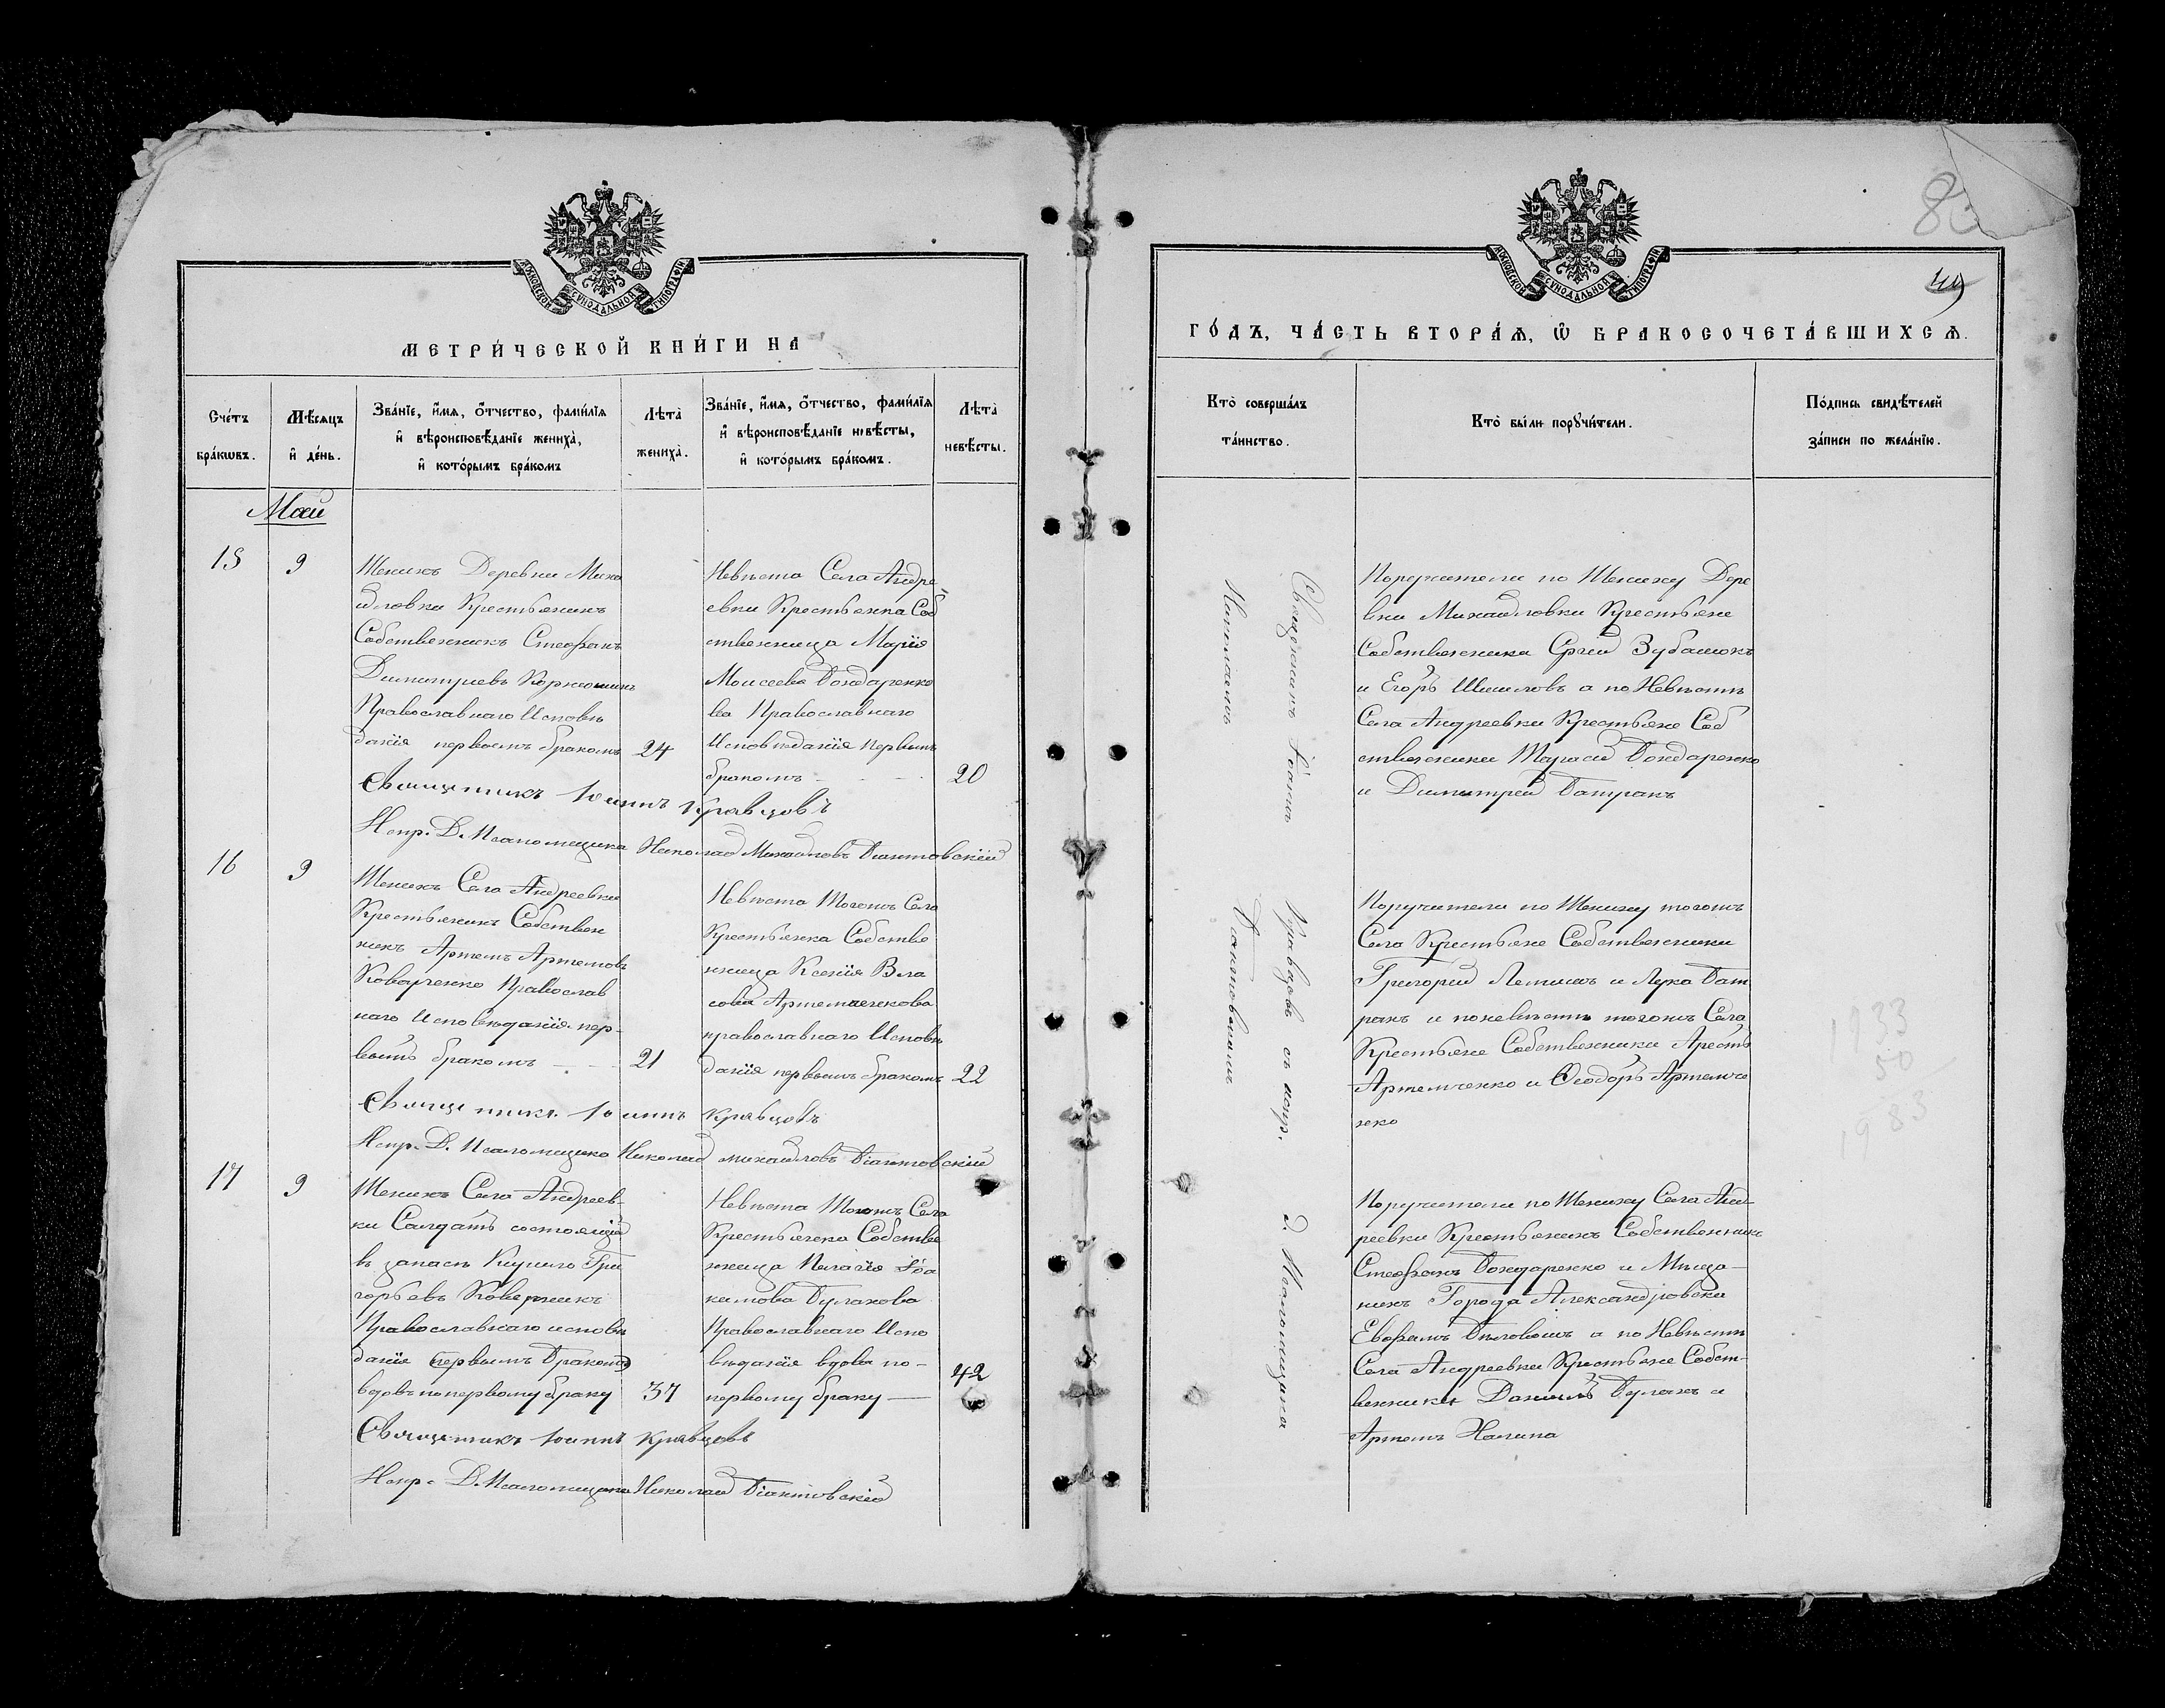 МОСКОВСКОЙ СѴНОДАЛЬНОЙ ТИПОГРАФІИ
МЕТРИ́ЧЕСКОЙ КНИ́ГИ НА
Сче́тъ бра́кѡвъ.
Мѣ́сяцъ и҆ де́нь.
Зва́нїе, и҆́мя, ѻ҆́тчество, фами́лїя
и҆ вѣроисповѣ́данїе жениха̀,
и҆ кото́рымъ бра́комъ
Лѣта̀ жениха̀.
Зва́нїе, и҆́мя, ѻ҆́тчество, фами́лїя
и҆ вѣроисповѣ́данїе невѣ́сты,
и҆ кото́рымъ бра́комъ.
Лѣта̀ невѣ́сты.
Май
15
9
Женихъ Деревни Миха
йловки Крестьянинъ
Собственникъ Стефанъ
Димитріевъ
Православнаго Исповѣ
данія первымъ бракомъ
24
Невѣста Села Андре
евки Крестьянка Соб
ственница Марія
Моисеева Бондаренко
ва Православнаго
Исповѣданія первымъ
бракомъ
20
Священникъ Іоаннъ Кравцовъ
Испр. Д. Псаломщика Николай Михайловъ
16
9
Женихъ Села Андреевки
Крестьянинъ Собствен
никъ Артемъ Артемовъ
Коваленко Православ
наго Исповѣданія пер-
вымъ бракомъ
21
Невѣста Тогожъ Села
Крестьянка Собстве
нница Ксенія Вла
сова Артемченкова
православнаго Исповѣ
данія первымъ бракомъ
22
Священникъ Іоаннъ Кравцовъ
Испр. Д. Псаломщика Николай Михайловъ
17
9
Женихъ Села Андреев-
ки Солдатъ состоящій
въ запасѣ Кирило Гри
горьевъ Коверникъ
Православнаго исповѣ
данія (первымъ Бракомъ)
вдовъ по первому браку
37
Невѣста Тогожъ Села
Крестьянка Собстве
нница Пелагія Іоа
кимова Булахова
Православнаго Испо
вѣданія вдова по-
первому браку
42
Священникъ Іоаннъ Кравцовъ
Испр. Д. Псаломщика Николай
МОСКОВСКОЙ СѴНОДАЛЬНОЙ ТИПОГРАФІИ
49
ГО́ДЪ, ЧА́СТЬ ВТОРА́Я, Ѡ҆ БРАКОСОЧЕТА́ВШИХСЯ.
Кто̀ соверша́лъ та́инство.
Кто̀ бы́ли порꙋчи́тели.
По́дпись свидѣ́телей за́писи по жела́нїю.
Священникъ Іоаннъ Кравцовъ съ испр. д. Псаломщика
Николаемъ
Поручители по Жениху Дере
вни Михайловки Крестьяне
Собственники Ергей Зубашокъ
и Егоръ Шишловъ а по Невѣстѣ
Села Андреевки Крестьяне Соб
ственники Тарасій Бондаренко
и Димитрій Батракъ
Поручители по Жениху тогожъ
Села Крестьяне Собственники
Григорій Лемишъ и Лука Бат
ракъ и по невѣстѣ тогожъ Села
Крестьяне Собственники Арестъ
Артемченко и Ѳеодоръ Артемче
нко
Поручители по Жениху Села Анд-
реевки Крестьянинъ Собственникъ
Стефанъ Бондаренко и Мѣща-
нинъ Города Александровска
Евфимъ а по Невѣстѣ
Села Андреевки Крестьяне Собст-
венники Даниилъ Булахъ и
Артемъ Калина
1933
50
1983